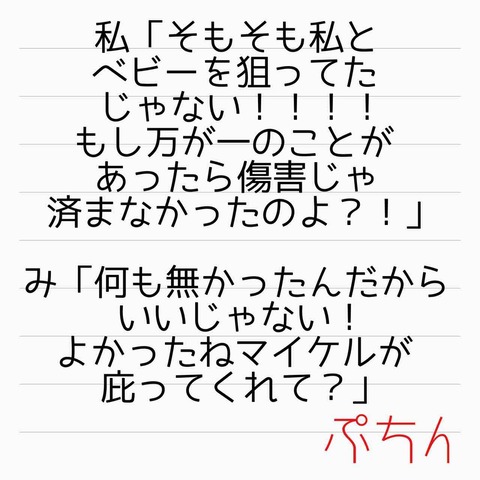 私「そもそも私と
ベビーを狙ってた
じゃない！！！！
もし万が一のことが
あったら傷害じゃ
済まなかったのよ？！」
み「何も無かったんだから
いいじゃない！
よかったねマイケルが
庇ってくれて？」
ぷちん